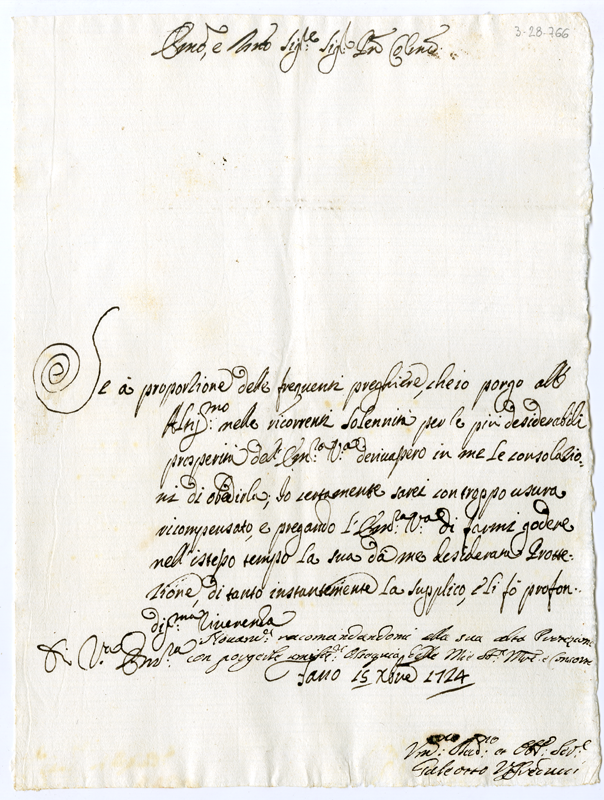 3-28-766
Emo, e Rmo Sigre. Sigr. Pn. Colmo.
Se à proportione delle frequenti preghiere, che io porgo all'
Altissmo: nelle ricorrenti solennità per le più desiderabili
prosperità dell'Emza: Va: derivassero in me le consolatio-
ni di obedirla; Io certamente sarei con troppo usura
ricompensato, e pregando l'Emza: Va di farmi godere
nell'istesso tempo la sua da me desiderata Protte-
zione, di tanto instantemente La supplico, e li fò profon-
dissma: riverenza
Di Va. Emza. racomandandomi alla sua alta Protezione
con porgerle Ossequij delle Mie
Fano 15 Xbre 1724
Vmo: et Obbo: Sere.
Galeotto